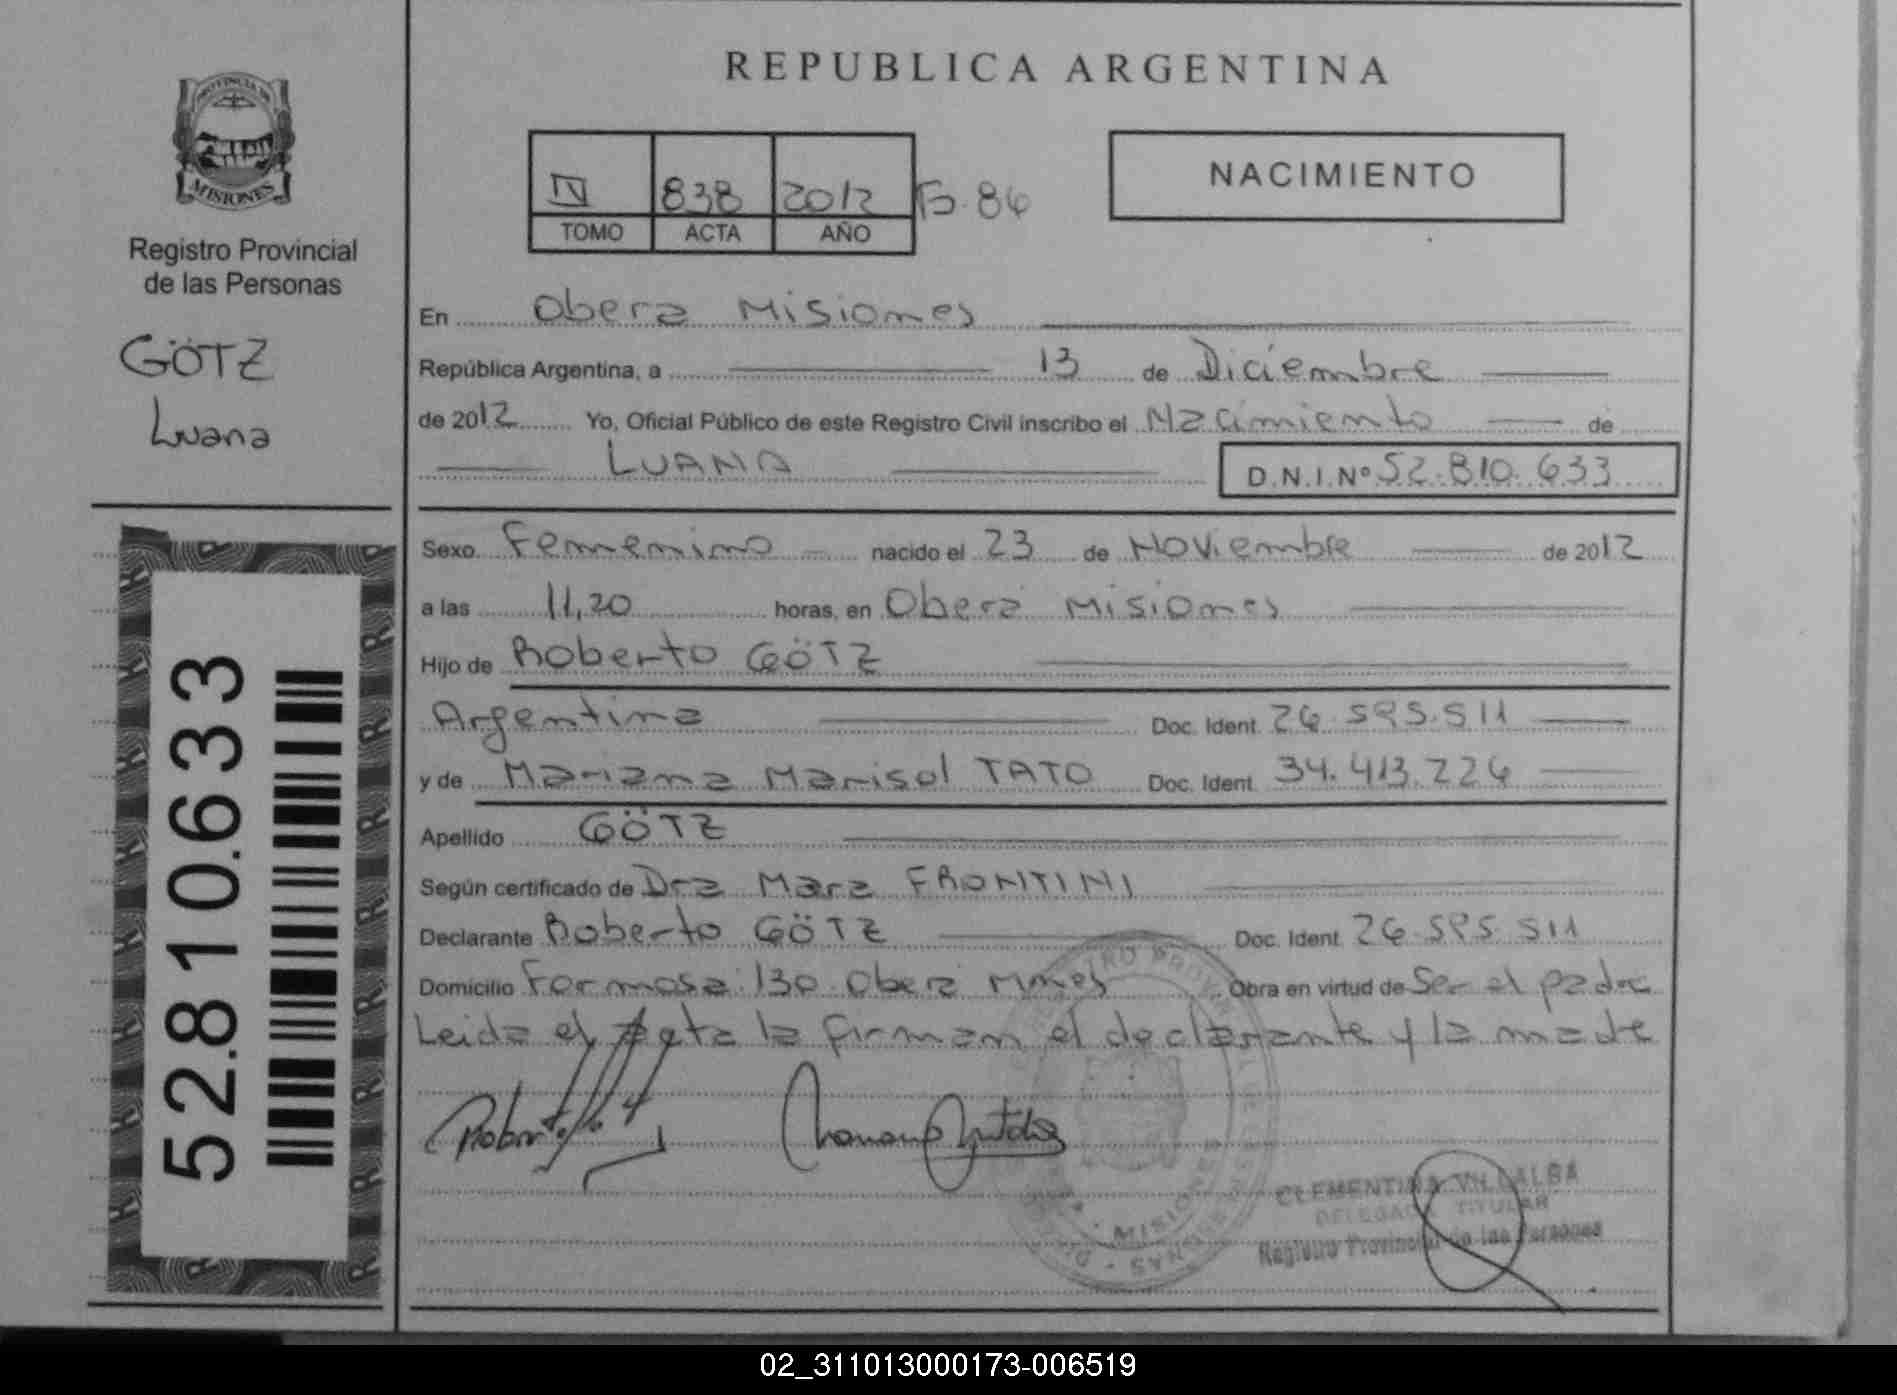 PROVINCIA DE
MISIONES
Registro Provincial
de las Personas
GÖTZ
Luana
52.810.633
REPUBLICA ARGENTINA
IV 838 2012 Fo. 86
TOMO ACTA AÑO
NACIMIENTO
En Obera Misiones
República Argentina, a 13 de Diciembre
de 2012 Yo, Oficial Público de este Registro Civil inscribo el Nacimiento de
LUANA D.N.I.Nº 52.810.633
Sexo Femenino nacido el 23 de Noviembre de 2012
a las 11,20 horas, en Obera Misiones
Hijo de Roberto GÖTZ
Argentina Doc. Ident. 26.595.511
y de Mariana Marisol TATO Doc. Ident. 34.413.226
Apellido GÖTZ
Según certificado de Dra Mara FRONTINI
Declarante Roberto GÖTZ Doc. Ident. 26.595.511
Domicilio Formosa 130 Obera Mnes Obra en virtud de Ser el padre
Leida el acta la firman el declarante y la madre
CLEMENTINA VILLALBA
DELEGADA TITULAR
Registro Provincial de las Personas
MISIONES
02_311013000173-006519